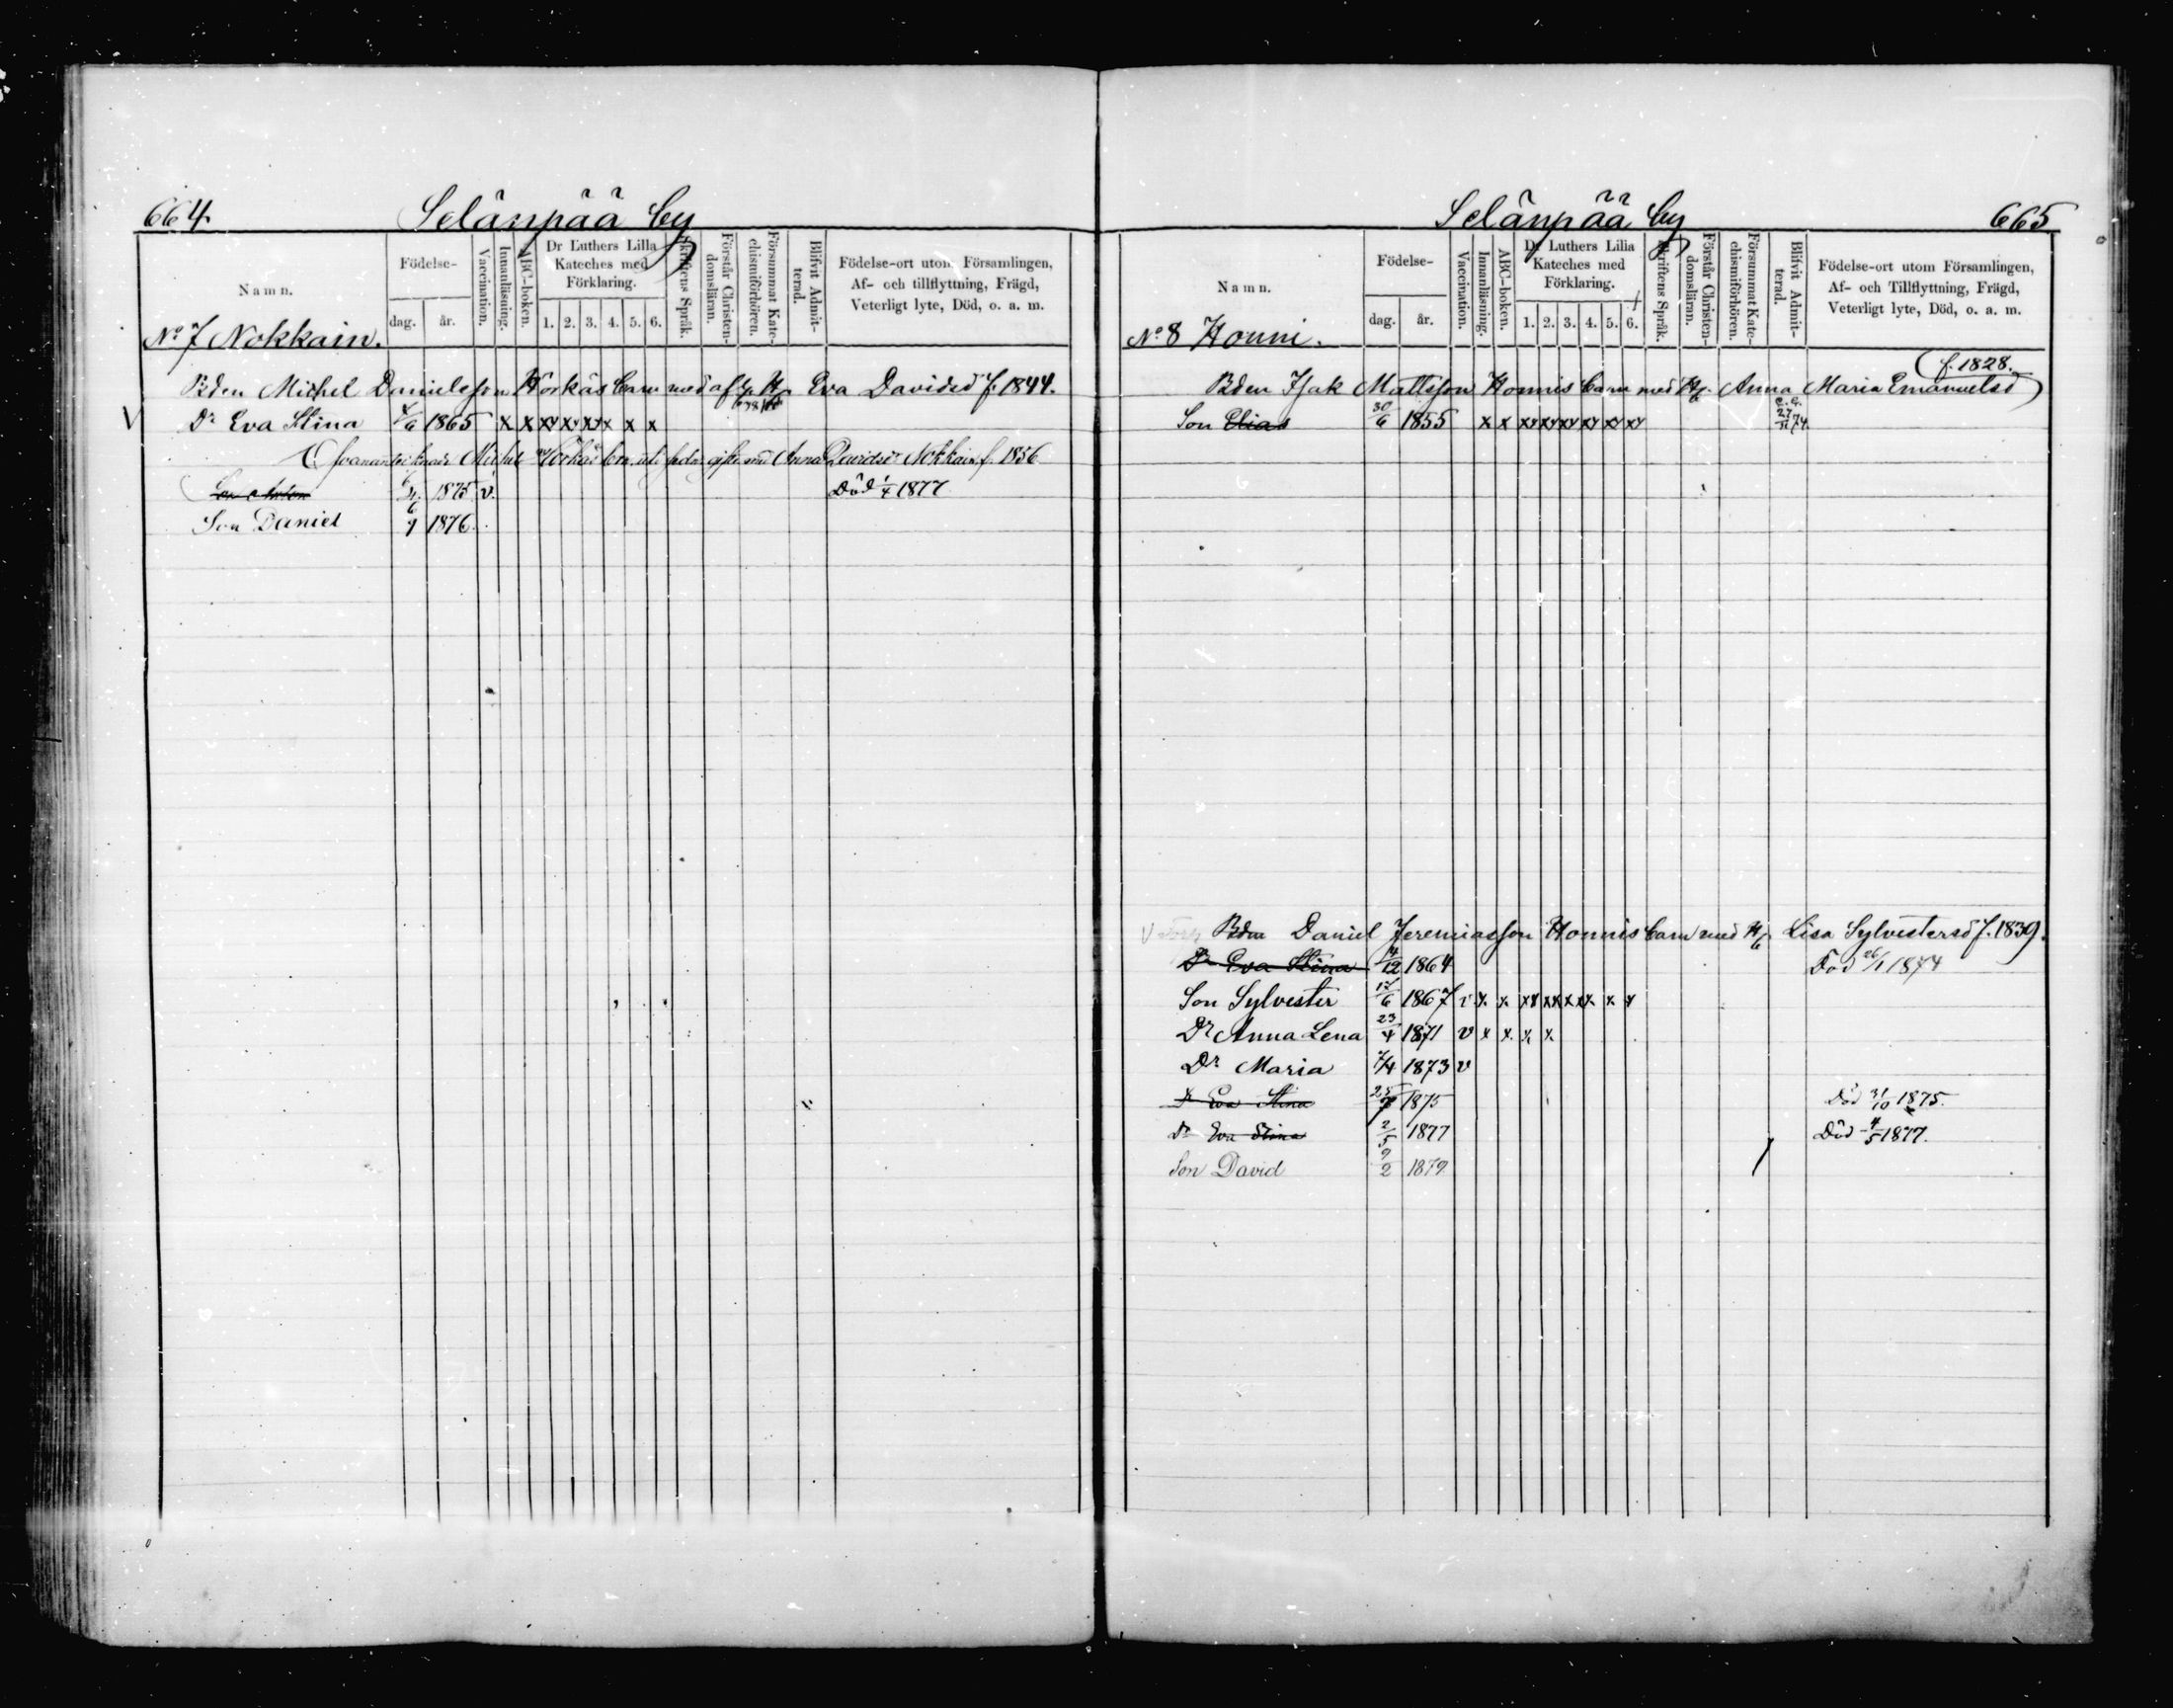 664. Selänpää by
Namn.
Födelse-
dag. år.
Vaccination.
Innanläsning.
ABC-boken.
Dr Luthers Lilla
Kateches med
Förklaring.
1. 2. 3. 4. 5. 6.
Skriftens Språk.
Förstår Christen-
domsläran.
Försummat Kate-
chismiförhören.
Blifvit Admit-
terad.
Födelse-ort utom Församlingen,
Af- och tillflyttning, Frägd,
Veterligt lyte, Död, o. a. m.
No 7 Nokkain.
Bden Michel Danielsson Korkäs barn med afl. H. Eva Davidsd f. 1844.
V Dr Eva Stina 1865 x x xx xx xx x x x
Michel gift med Anna Nokkain f. 1856
Son Anton 1875 v. Död 1/4 1877
Son Daniel 6/9 1876
Selänpää by 665
Namn.
Födelse-
dag. år.
Vaccination.
Innanläsning.
ABC-boken.
Dr Luthers Lilla
Kateches med
Förklaring.
1. 2. 3. 4. 5. 6.
Skriftens Språk.
Förstår Christen-
domsläran.
Försummat Kate-
chismiförhören.
Blifvit Admit-
terad.
Födelse-ort utom Församlingen,
Af- och Tillflyttning, Frägd,
Veterligt lyte, Död, o. a. m.
No 8 Honni.
f. 1828.
Bden Isak Mattsson Honnis barn med H. Anna Maria Emanuelsd
Son Elias 30/6 1855 x x xx xx xx xx xx xx 74
V Bden Daniel Jeremiasson Honnis barn med H. Lisa Sylvestersd f. 1839.
Dr Eva Stina 4/12 1864 Död 26/1 1874
Son Sylvester 17/6 1867 v x x xx xx xx xx x x
Dr Anna Lena 23/4 1871 v x x x x
Dr Maria 7/4 1873 v
Dr Eva Stina 25/7 1875 Död 31/10 1875.
Dr Eva Stina 2/5 1877 Död 4/5 1877.
Son David 9/2 1879